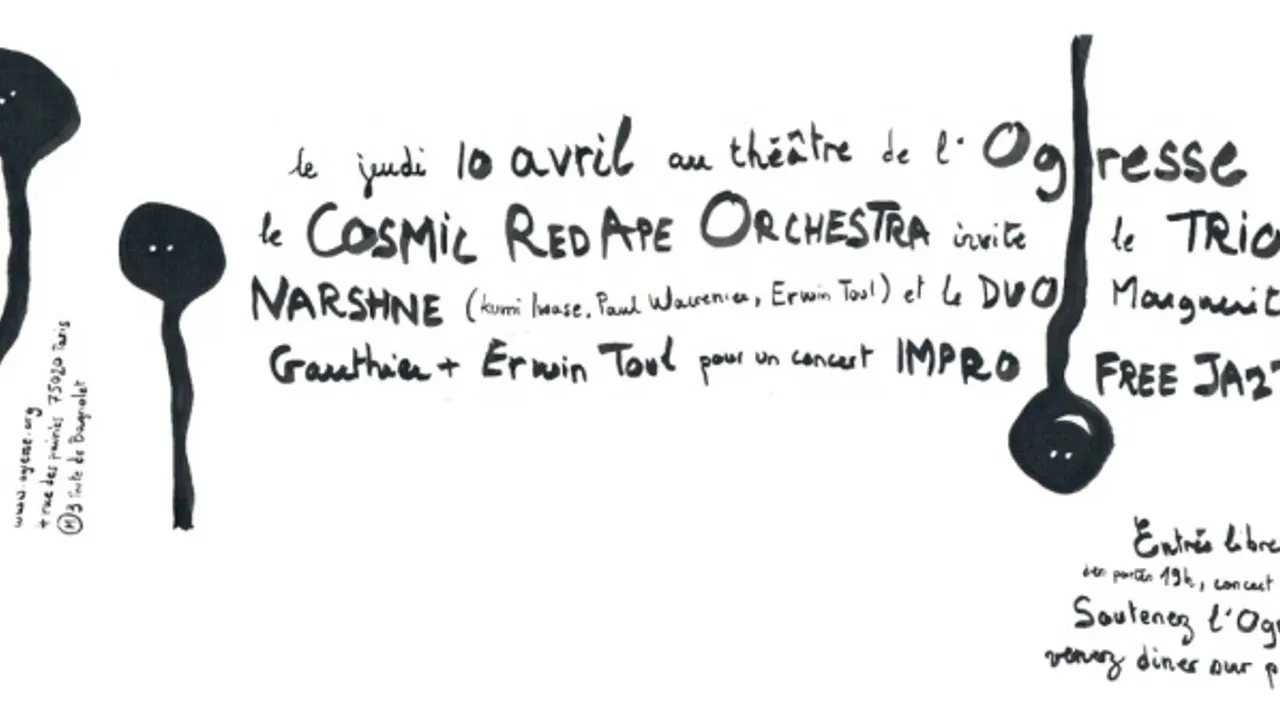 le jeudi 10 avril au théâtre de l'Ogresse
le COSMIC RED APE ORCHESTRA invite le TRIO
NARSHNE (kumi Iwase, Paul Wacrenier, Erwin Toul) et le DUO Marguerit
Gauthier + Erwin Toul pour un concert IMPRO FREE JAZZ
www.ogresse.org
4 rue des prairies 75020 Paris
(M) 3 Porte de Bagnolet
Entrée libre
des portes 19h, concert
Soutenez l'Ogr
venez diner sur p